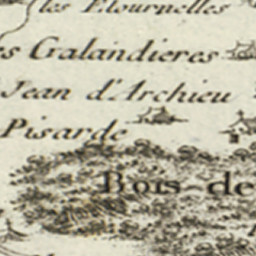 les Elournelles
es Galandieres
Jean d'Archieu
Pisarde
Bois de